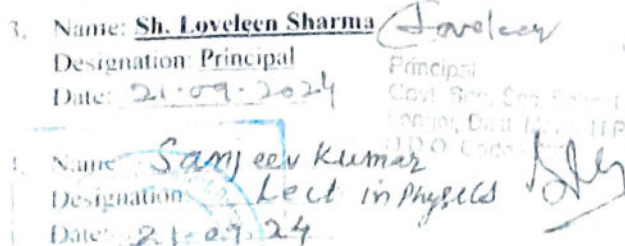 3. Name: Sh. Loveleen Sharma Loveleen
Designation: Principal
Date: 21.09.2024
Principal
Govt. Sen. Sec. School
D.D.O. Code
4. Name Sanjeev Kumar
Designation Lect in Physics
Date: 21.09.24